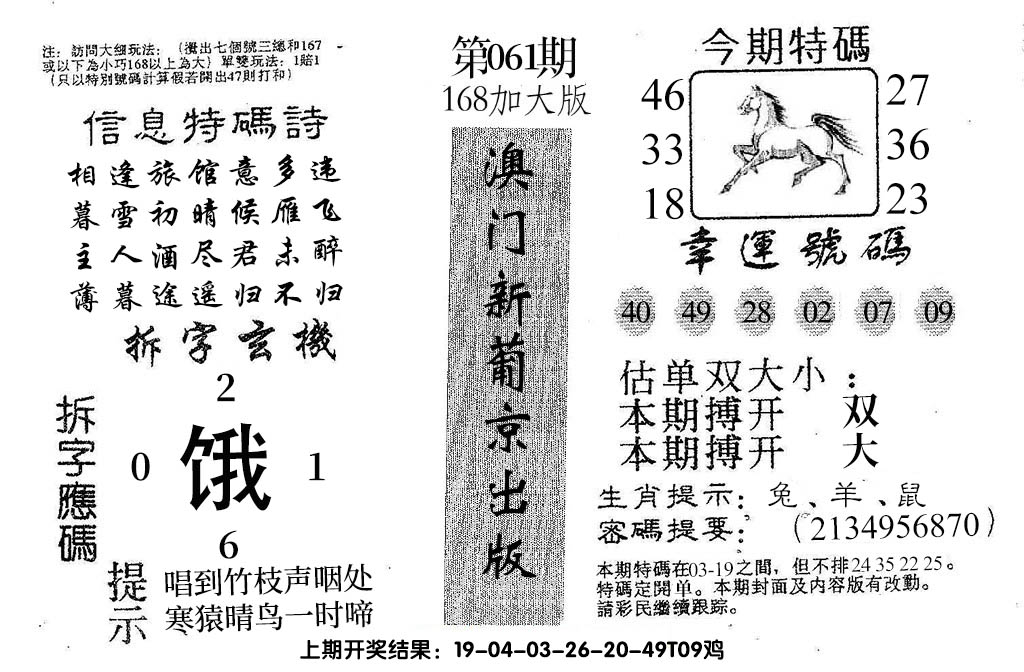 注：訪問大細玩法：（攪出七個號三總和167
或以下為小巧168以上為大）單雙玩法：1賠1
（只以特別號碼計算假若開出47則打和）
信息特碼詩
相逢旅馆意多违
暮雪初晴候雁飞
主人酒尽君未醉
薄暮途遥归不归
拆字玄機
拆字應碼
2
0 饿 1
6
提示
唱到竹枝声咽处
寒猿晴鸟一时啼
第061期
168加大版
澳门新葡京出版
今期特碼
46 27
33 36
18 23
幸運號碼
40 49 28 02 07 09
估单双大小：
本期搏开 双
本期搏开 大
生肖提示：兔、羊、鼠
密碼提要：（2134956870）
本期特碼在03-19之間，但不排24 35 22 25。
特碼定開单。本期封面及内容版有改動。
請彩民繼續跟踪。
上期开奖结果：19-04-03-26-20-49T09鸡